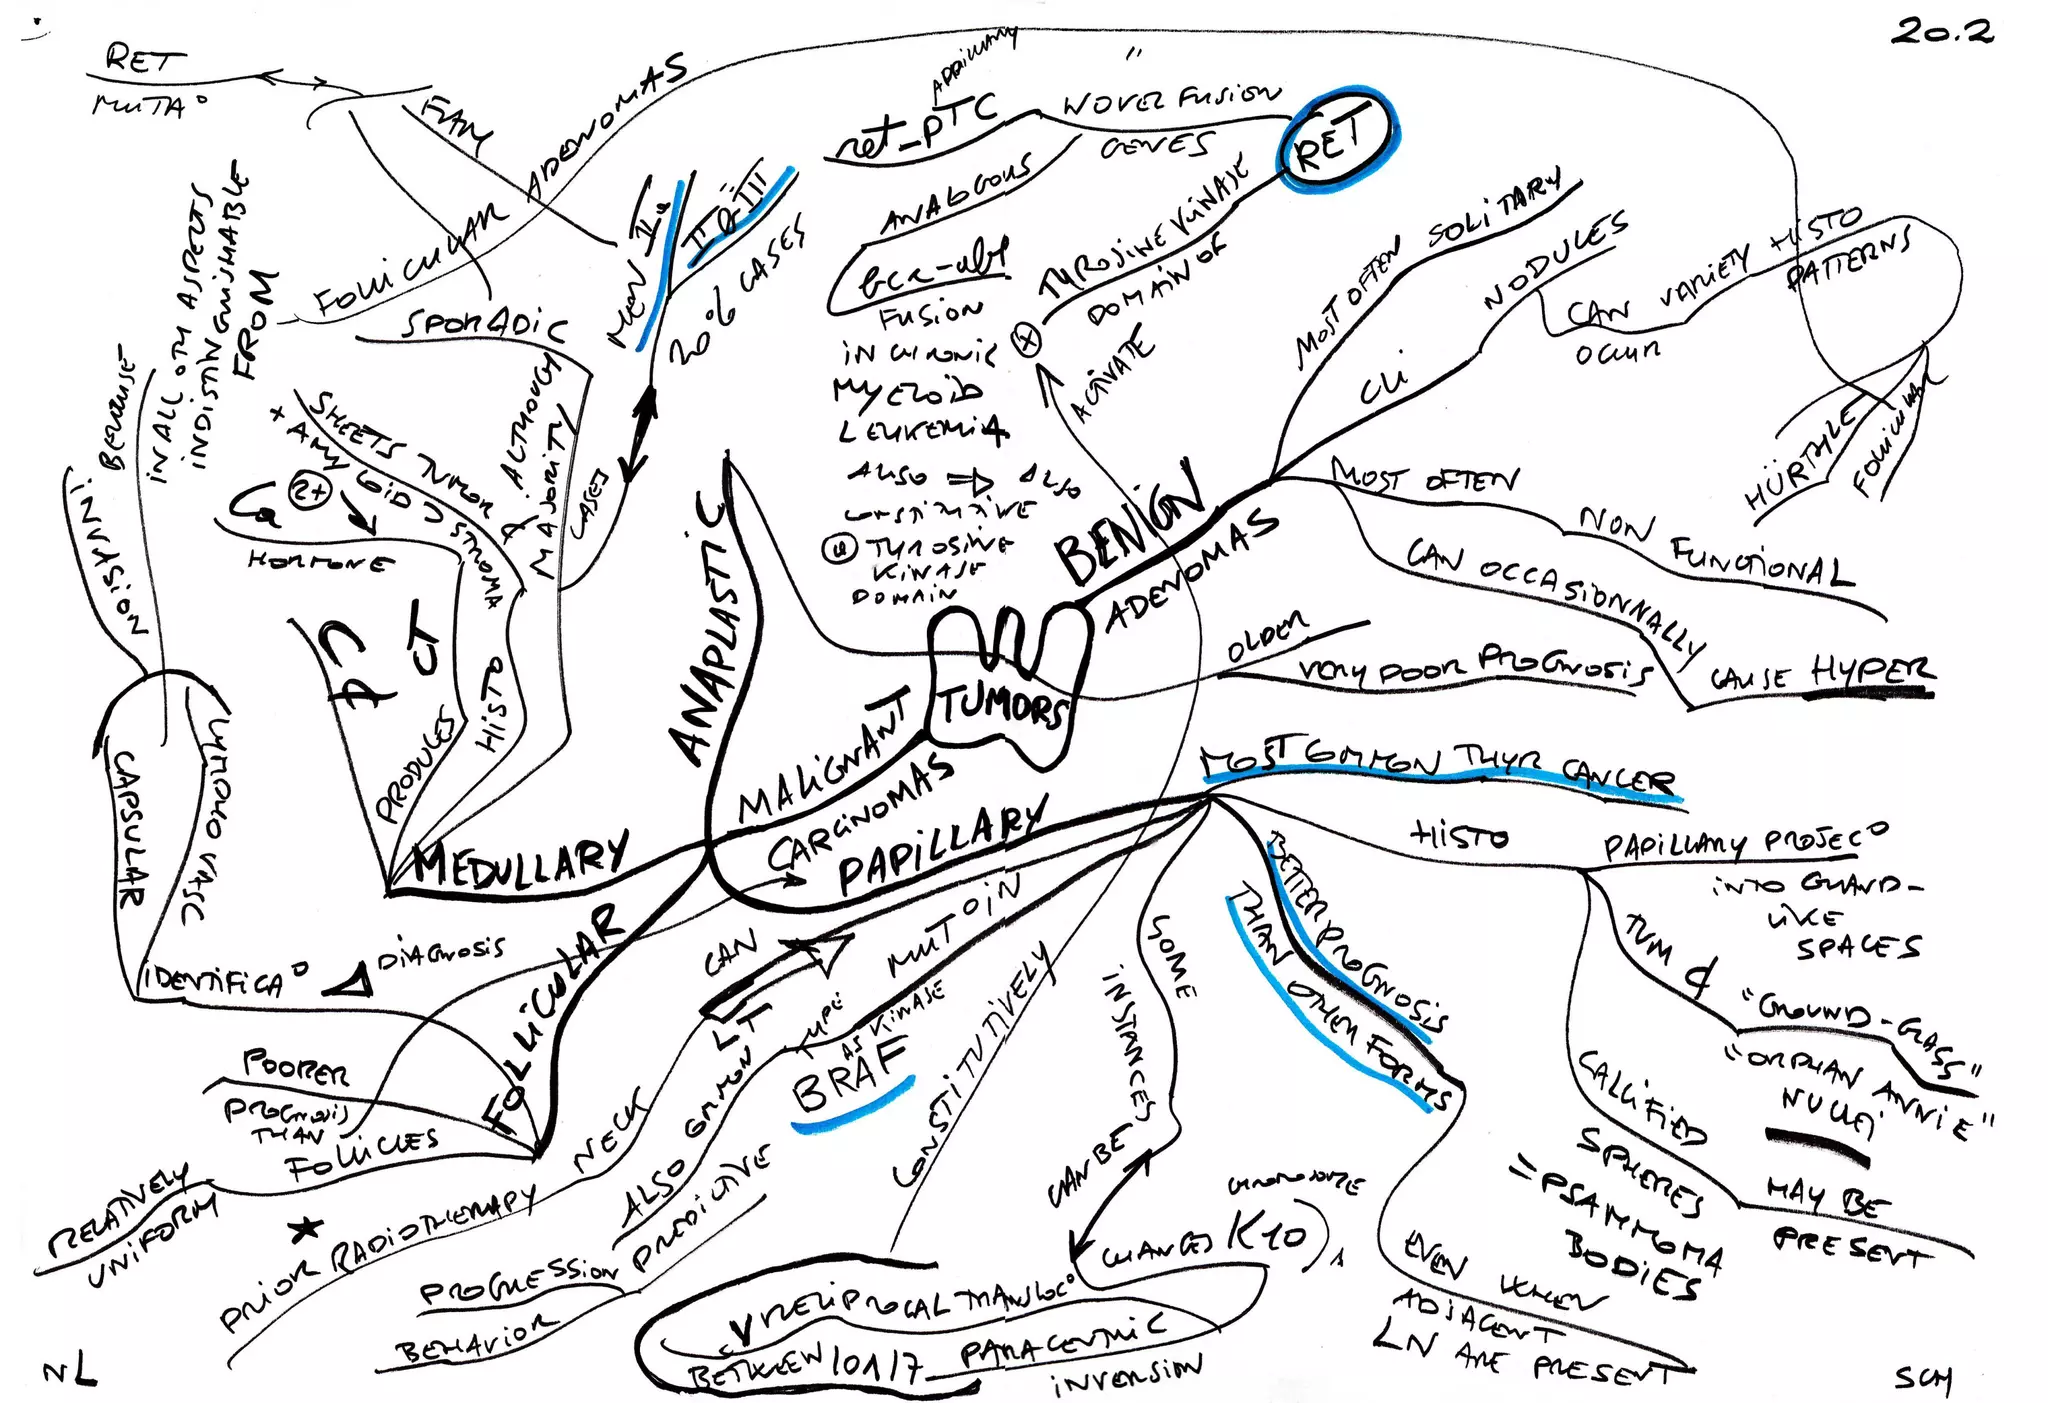 20.2
RET
MUTA°
FAM
SPORADIC
ALTHOUGH
MAJORITY
CASES
MEN IIa
II or III
20% CASES
FOLLICULAR ADENOMAS
BECAUSE
IN ALL OTH ASPECTS
INDISTINGUISHABLE
FROM
INVASION
CAPSULAR
LYMPHOVASC
IDENTIFICA°
DIAGNOSIS
SHEETS TUMOR
+ AMYLOID STROMA
HISTO
Ca 2+
HORMONE
CT
PRODUCES
MEDULLARY
ANAPLASTIC
MALIGNANT
CARCINOMAS
TUMORS
PAPILLARY
FOLLICULAR
POORER
PROGNOSIS
THAN
FOLLICLES
RELATIVELY
UNIFORM
ret-PTC
NOVEL FUSION
GENES
RET
ANALOGOUS
bcr-abl
FUSION
IN CHRONIC
MYELOID
LEUKEMIA
ALSO ⇒ ALSO
CONSTITUTIVE
TYROSINE
KINASE
DOMAIN
TYROSINE KINASE
DOMAIN OF
ACTIVATE
BENIGN
ADENOMAS
MOST OFTEN SOLITARY
CLI
NODULES
CAN VARIETY HISTO
OCCUR
PATTERNS
HÜRTHLE
FOLLICULAR
MOST OFTEN
NON FUNCTIONAL
CAN OCCASIONNALLY
CAUSE HYPER
OLDER
VERY POOR PROGNOSIS
MOST COMMON THYR CANCER
HISTO
PAPILLARY PROJEC°
INTO GLAND-
LIKE
SPACES
TUM
"GROUND-GLASS"
"ORPHAN ANNIE"
NUCLEI
CALCIFIED
SPHERES
= PSAMMOMA
BODIES
MAY BE
PRESENT
BETTER PROGNOSIS
THAN OTHER FORMS
EVEN WHEN
ADJACENT
LN ARE PRESENT
SOME
INSTANCES
CAN BE
CHANGES K10
CHROMOSOME
RECIPROCAL TRANSLOC°
BETWEEN 10 1/7
PARACENTRIC
INVERSION
CONSTITUTIVELY
MUT° IN
KINASE
BRAF
ALSO COMMON
PREDICTIVE
PROGRESSION
BEHAVIOR
CAN
LT
NECK
PRIOR RADIOTHERAPY
NL
SCM